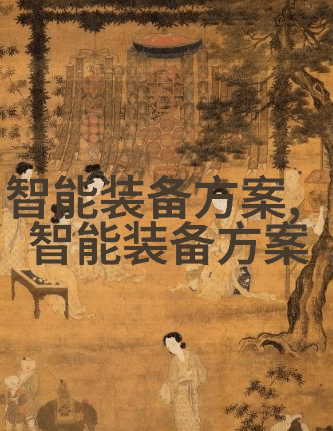 智能装备方案,
智能装备方案